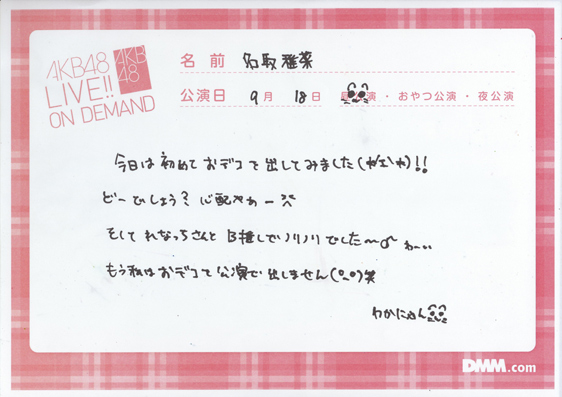 AKB48
LIVE!!
ON DEMAND
AKB
48
名前 名取稚菜
公演日 9月 18日 昼公演・おやつ公演・夜公演
今日は初めておデコを出してみました(かェか)!!
どーでしょう? 心配やわー
そして れなっちさんと B推しでノリノリでした〜♂ わーい
もう私はおデコを公演で出しません(°_°)笑
わかにゃん
DMM.com